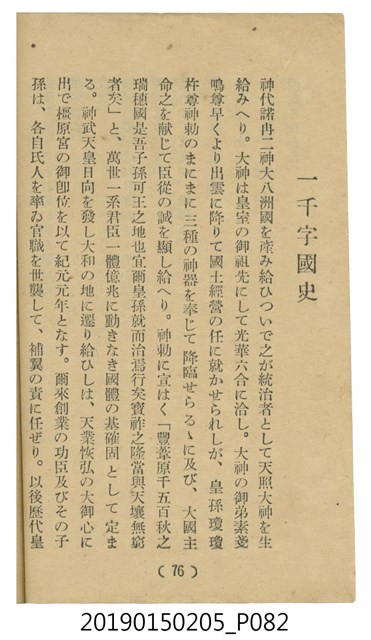 一千字國史
神代諾冉二神大八洲國を產み給ひついで之が統治者として天照大神を生
給みへり。大神は皇室の御祖先にして光華六合に洽し。大神の御弟素戔
鳴尊早くより出雲に降りて國土經營の任に就かせられしが、皇孫瓊瓊
杵尊神勅のまにまに三種の神器を奉じて降臨せらるゝに及び、大國主
命之を献じて臣從の誠を顯し給へり。神勅に宣はく「豐葦原千五百秋之
瑞穗國是吾子孫可王之地也宜爾皇孫就而治焉行矣寶祚之隆當與天壤無窮
者矣」と、萬世一系君臣一體億兆に動きなき國體の基確固として定ま
る。神武天皇日向を發し大和の地に遷り給ひしは、天業恢弘の大御心に
出で橿原宮の御卽位を以て紀元元年となす。爾來創業の功臣及びその子
孫は、各自氏人を率ゐ官職を世襲して、補翼の責に任ぜり。以後歷代皇
(76)
20190150205_P082